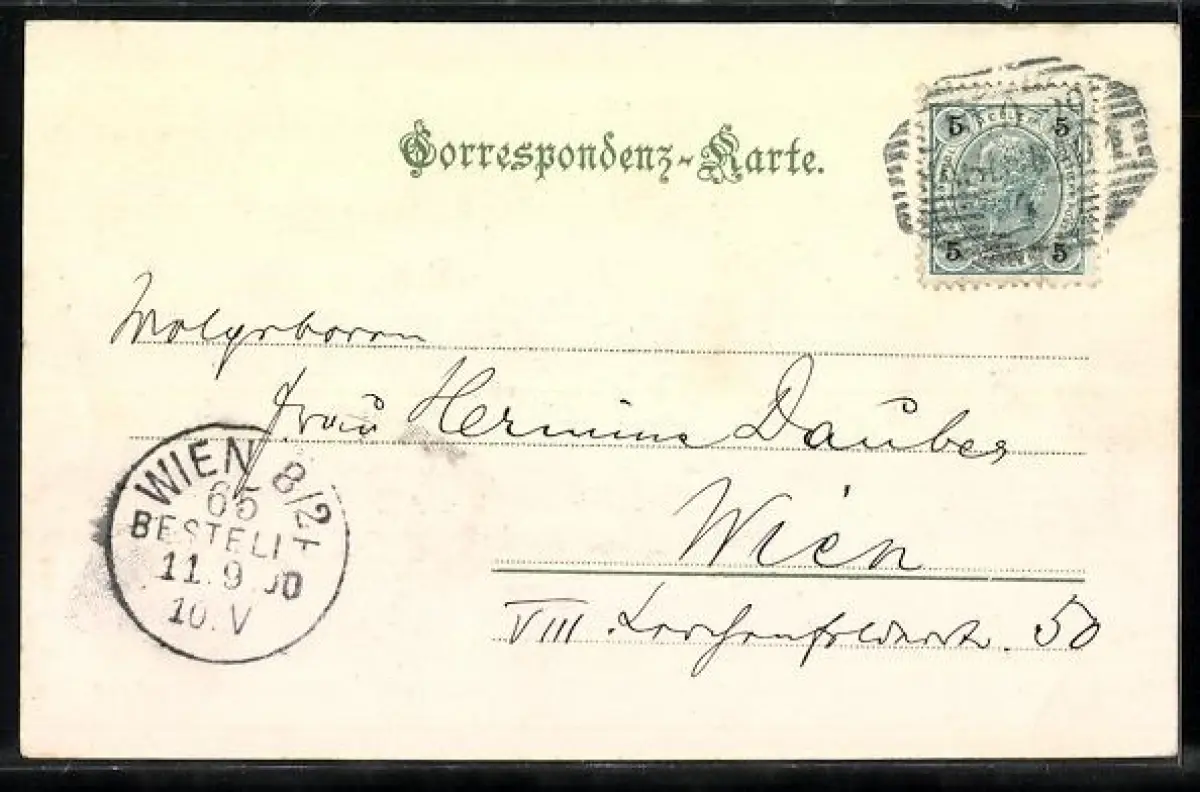 Correspondenz-Karte.
5 5
5 5
Wolgeboren
Frau Hermine Dauber
Wien
VIII. Lerchenfelderstr. 50
WIEN 8/2
65
BESTELLT
11.9.00
10.V